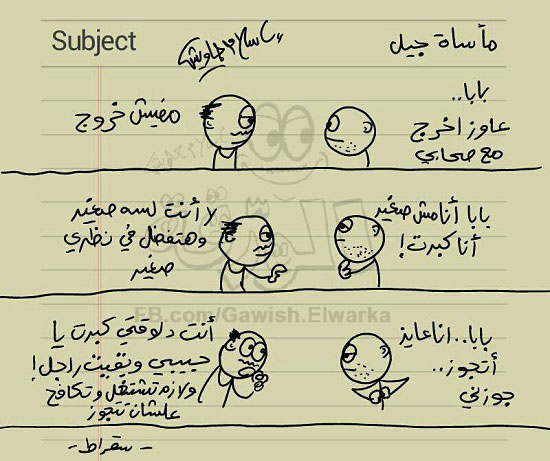 Subject
مأساة جيل
إسلام جاويش
بابا..
عاوز اخرج
مع صحابي
مفيش خروج
بابا أنا مش صغير
أنا كبرت!
لا أنت لسه صغير
وهتفضل في نظري
صغير
FB.com/Gawish.Elwarka
بابا.. انا عايز
أتجوز..
جوزني
أنت دلوقتي كبرت يا
حبيبي وبقيت راجل!
ولازم تشتغل وتكافح
علشان تتجوز
- سقراط -